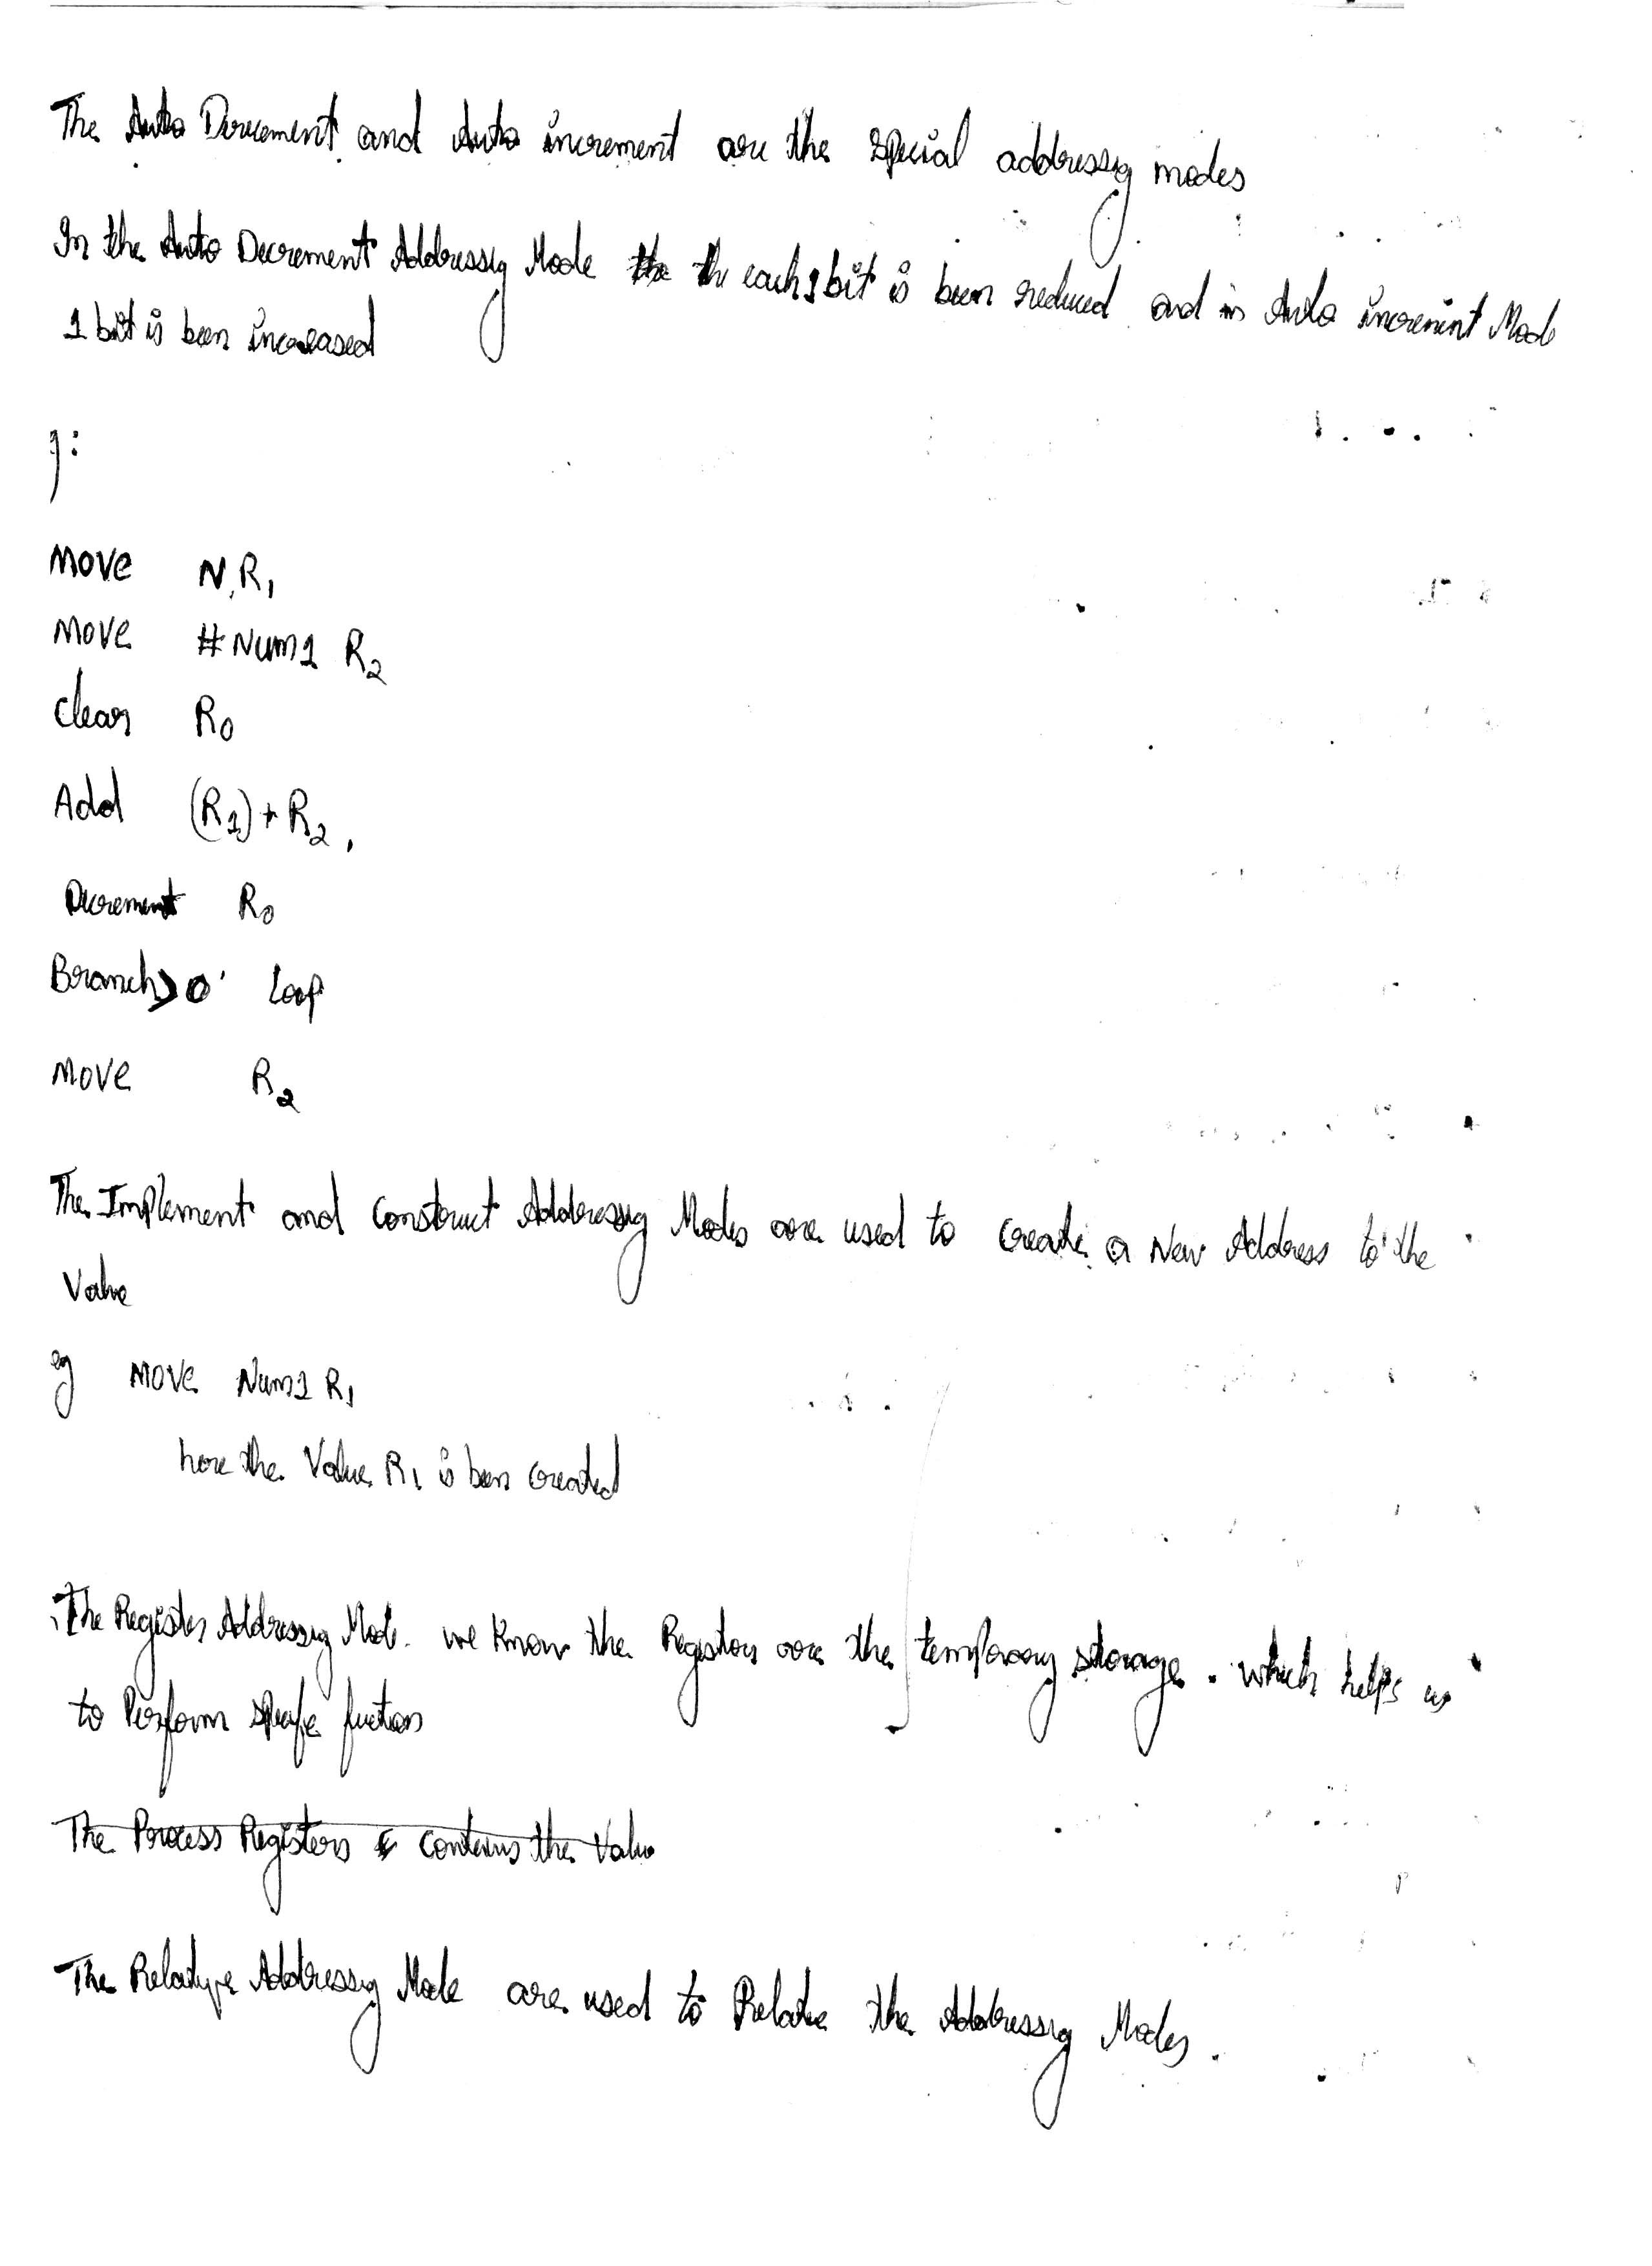 The Auto Decrement and Auto increment are the special addressig modes
In the Auto Decrement Addressig Mode the the each 1 bit is been reduced and in Auto increment Mode
1 bit is been increased
g:
Move N, R1
Move #Num1 R2
Clear R0
Add (R1)+ R2,
Decrement R0
Branch>0 Loop
Move R2
The Implement and Construct Addressig Modes are used to create a New Address to the
Value
eg Move Num1 R1
here the Value R1 is been created
The Register Addressig Mode. we know the Registers are the temporary storage. which helps us
to Perform
The Process Registers contains the Value
The Relative Addressig Mode are used to Relate the Addressig Modes.